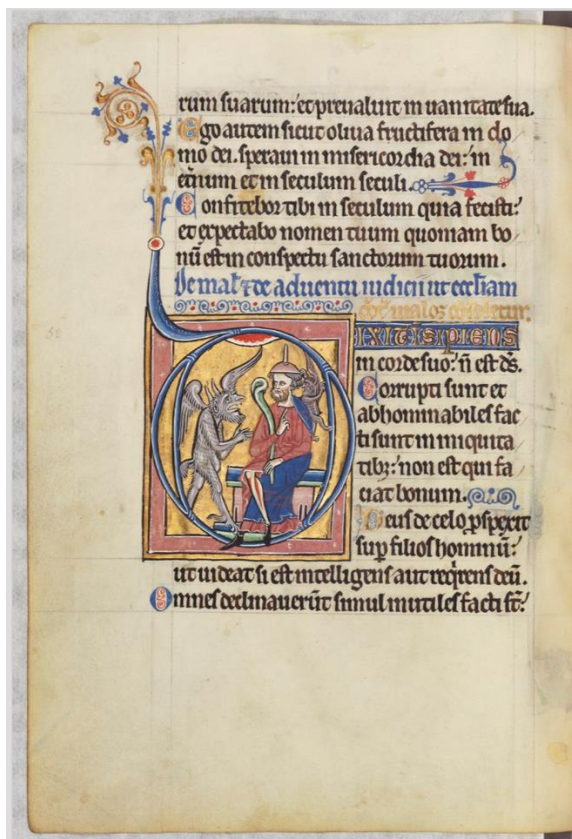 rum suarum: et prevaluit in vanitate sua.
Ego autem sicut oliva fructifera in do
mo dei. speravi in misericordia dei: in
et̄num et in seculum seculi.
Confitebor tibi in seculum quia fecisti:
et expectabo nomen tuum quoniam bo
nū est in conspectu sanctorum tuorum.
De mal⁊ de adventu iudicii ut eccl̄iam
malos
DIXIT ISIPIENS
in corde suo: n̄ est d̄s.
Corrupti sunt et
abhominabiles fac
ti sunt in iniquita
tibz: non est qui fa
ciat bonum.
Deus de celo ꝓspexit
sup̄ filios hominū:
ut videat si est intelligens aut reqͥrens deū.
Omnes declinaverūt simul inutiles facti st̄: